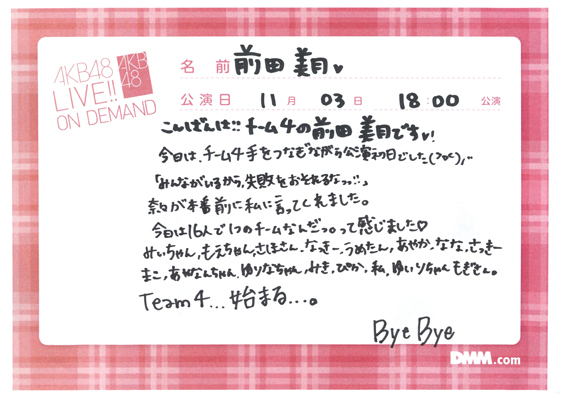 AKB48
LIVE!!
ON DEMAND
AKB
48
名 前 前田 美月♥
公演日 11月 03日 18:00 公演
こんばんは!! チーム4の前田 美月です♥!
今日は、チーム4手をつなぎながら公演初日でした
「みんながいるから、失敗をおそれるなっ!!」
奈々が本番前に私に言ってくれました。
今日は16人で1つのチームなんだっ。って感じました♡
みぃちゃん、もえちゃん、さほさん、なっきー、うめたん、あやか、なな、さっきー
まこ、あやなんちゃん、ゆりなちゃん、みき、ぴか、私、ゆいりちゃん もぎさん。
Team4...始まる...。
Bye Bye
DMM.com